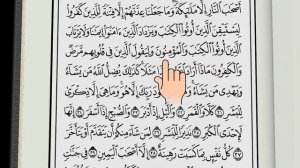 أَصْحَٰبَ ٱلنَّارِ إِلَّا مَلَٰٓئِكَةً وَمَا جَعَلْنَا عِدَّتَهُمْ إِلَّا فِتْنَةً لِّلَّذِينَ كَفَرُوا۟
لِيَسْتَيْقِنَ ٱلَّذِينَ أُوتُوا۟ ٱلْكِتَٰبَ وَيَزْدَادَ ٱلَّذِينَ ءَامَنُوٓا۟ إِيمَٰنًا وَلَا يَرْتَابَ
ٱلَّذِينَ أُوتُوا۟ ٱلْكِتَٰبَ وَٱلْمُؤْمِنُونَ وَلِيَقُولَ ٱلَّذِينَ فِى قُلُوبِهِم مَّرَضٌ
وَٱلْكَٰفِرُونَ مَاذَآ أَرَادَ مَثَلًا كَذَٰلِكَ يُضِلُّ ٱللَّهُ مَن يَشَآءُ
وَيَهْدِى مَن يَشَآءُ وَمَا رَبِّكَ إِلَّا هُوَ وَمَا هِىَ إِلَّا ذِكْرَىٰ
لِلْبَشَرِ ٣١ كَلَّا وَٱلْقَمَرِ ٣٢ وَٱلَّيْلِ إِذْ أَدْبَرَ ٣٣ وَٱلصُّبْحِ إِذَآ أَسْفَرَ ٣٤ إِنَّهَا
لَإِحْدَى ٱلْكُبَرِ ٣٥ نَذِيرًا لِّلْبَشَرِ ٣٦ لِمَن شَآءَ مِنكُمْ أَن يَتَقَدَّمَ أَوْ يَتَأَخَّرَ
٣٧ كُلُّ نَفْسٍۭ بِمَا كَسَبَتْ رَهِينَةٌ ٣٨ إِلَّآ أَصْحَٰبَ ٱلْيَمِينِ ٣٩ فِى جَنَّٰتٍ